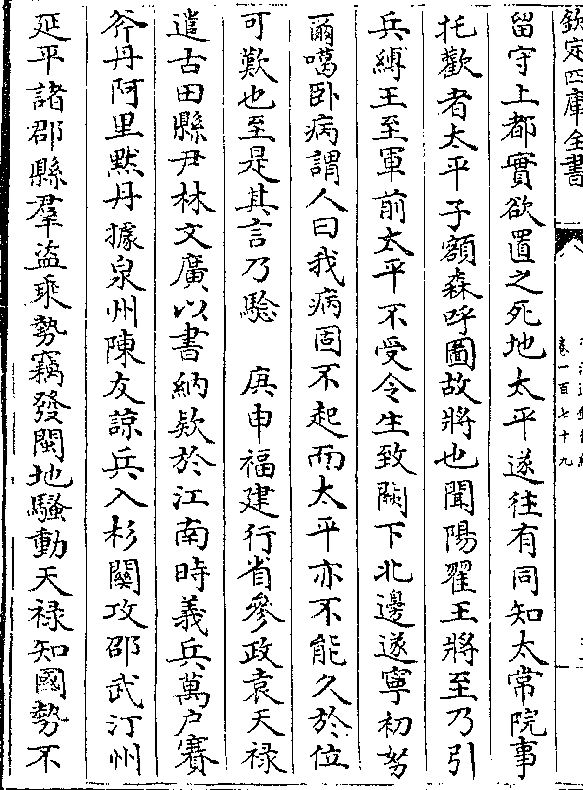 欽定四庫全書
卷一百七十九
留守上都實欲置之死地太平遂往有同知太常院事
托歡者太平子額森呼圖故將也聞陽翟王將至乃引
兵縛王至軍前太平不受令生致闕下北邊遂寧初努
爾噶卧病謂人曰我病固不起而太平亦不能久於位
可歎也至是其言乃驗　庚申福建行省參政袁天禄
遣古田縣尹林文廣以書納欵於江南時義兵萬户賽
斧丹阿里黙丹據泉州陳友諒兵入杉關攻邵武汀州
延平諸郡縣羣盜乘勢竊發閩地騷動天禄知國勢不